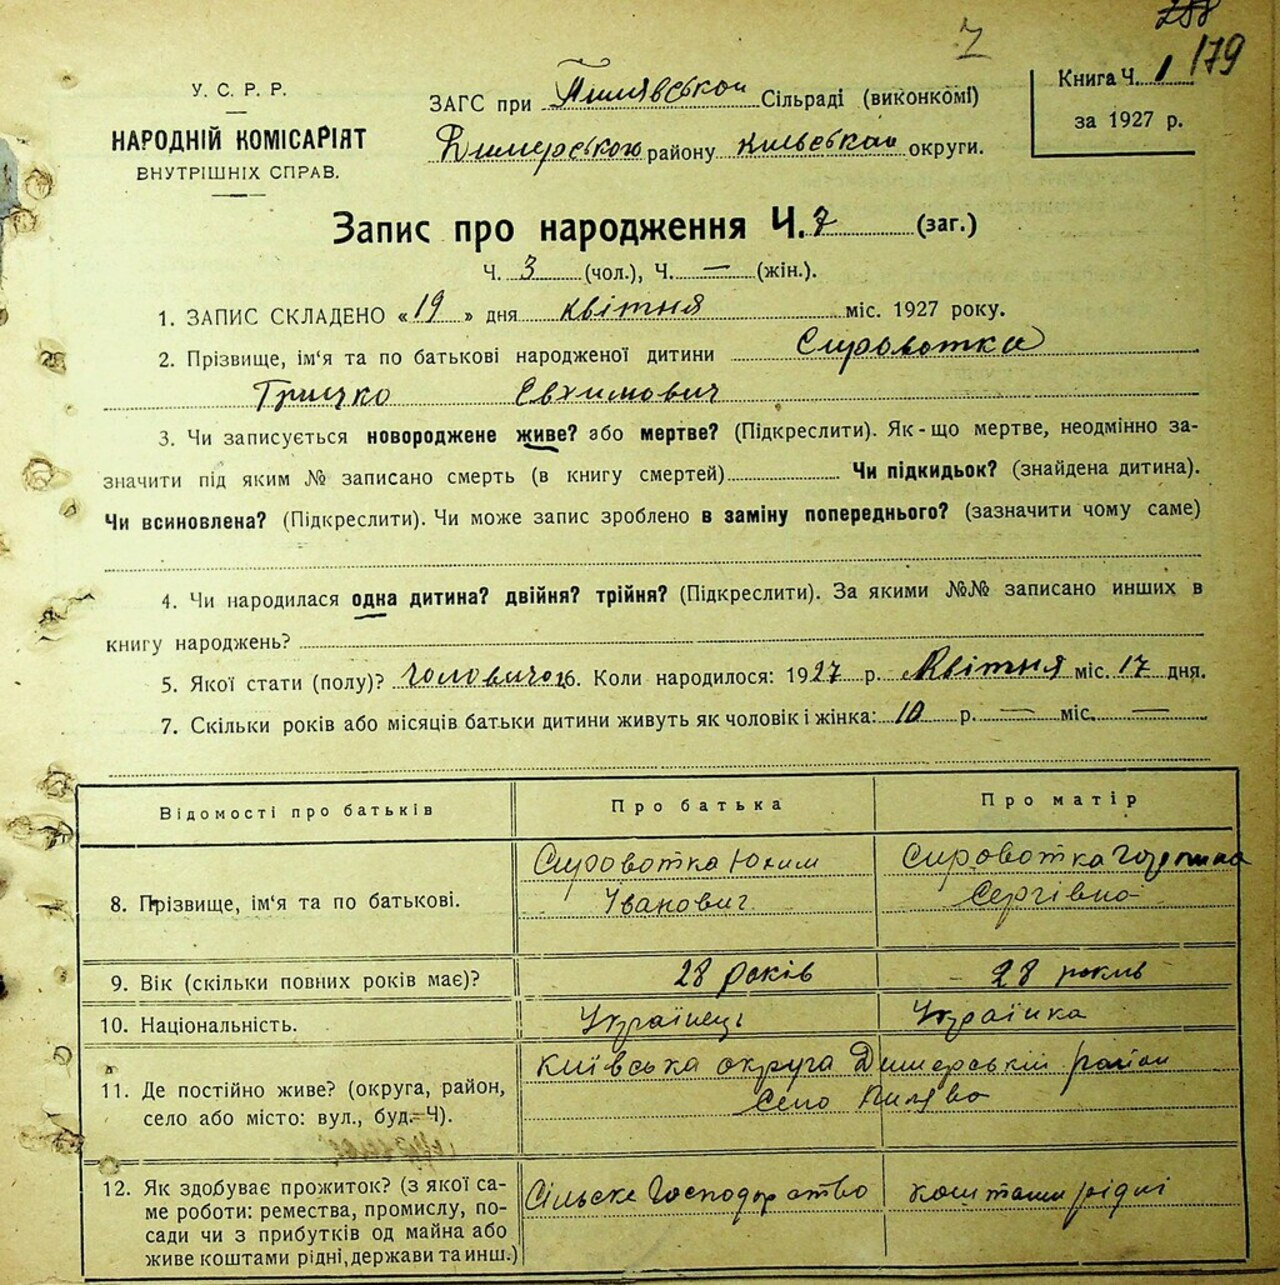 7
288
179
У. С. Р. Р.
НАРОДНІЙ КОМІСАРІЯТ
ВНУТРІШНІХ СПРАВ.
ЗАГС при Пилявській Сільраді (виконкомі)
Димерського району Київської округи.
Книга Ч. 1
за 1927 р.
Запис про народження Ч. 7 (заг.)
Ч. 3 (чол.), Ч. — (жін.).
1. ЗАПИС СКЛАДЕНО «19» дня квітня міс. 1927 року.
2. Прізвище, ім'я та по батькові народженої дитини Сироватка
Грицко Євхимович
3. Чи записується новороджене живе? або мертве? (Підкреслити). Як-що мертве, неодмінно за-
значити під яким № записано смерть (в книгу смертей) Чи підкидьок? (знайдена дитина).
Чи всиновлена? (Підкреслити). Чи може запис зроблено в заміну попереднього? (зазначити чому саме)
4. Чи народилася одна дитина? двійня? трійня? (Підкреслити). За якими №№ записано инших в
книгу народжень?
5. Якої стати (полу)? чоловичої 6. Коли народилося: 1927 р. Квітня міс. 17 дня.
7. Скільки років або місяців батьки дитини живуть як чоловік і жінка: 10 р. — міс. —
Відомості про батьків Про батька Про матір
8. Прізвище, ім'я та по батькові. Сировотка Юхим Іванович Сировотка Горпина Сергівна
9. Вік (скільки повних років має)? 28 років 28 років
10. Національність. Українець Українка
11. Де постійно живе? (округа, район, Київська округа Димерській район
село або місто: вул., буд. Ч). Село Пилява
12. Як здобуває прожиток? (з якої са- Сільске Господарство коштами рідні
ме роботи: ремества, промислу, по-
сади чи з прибутків од майна або
живе коштами рідні, держави та инш.)